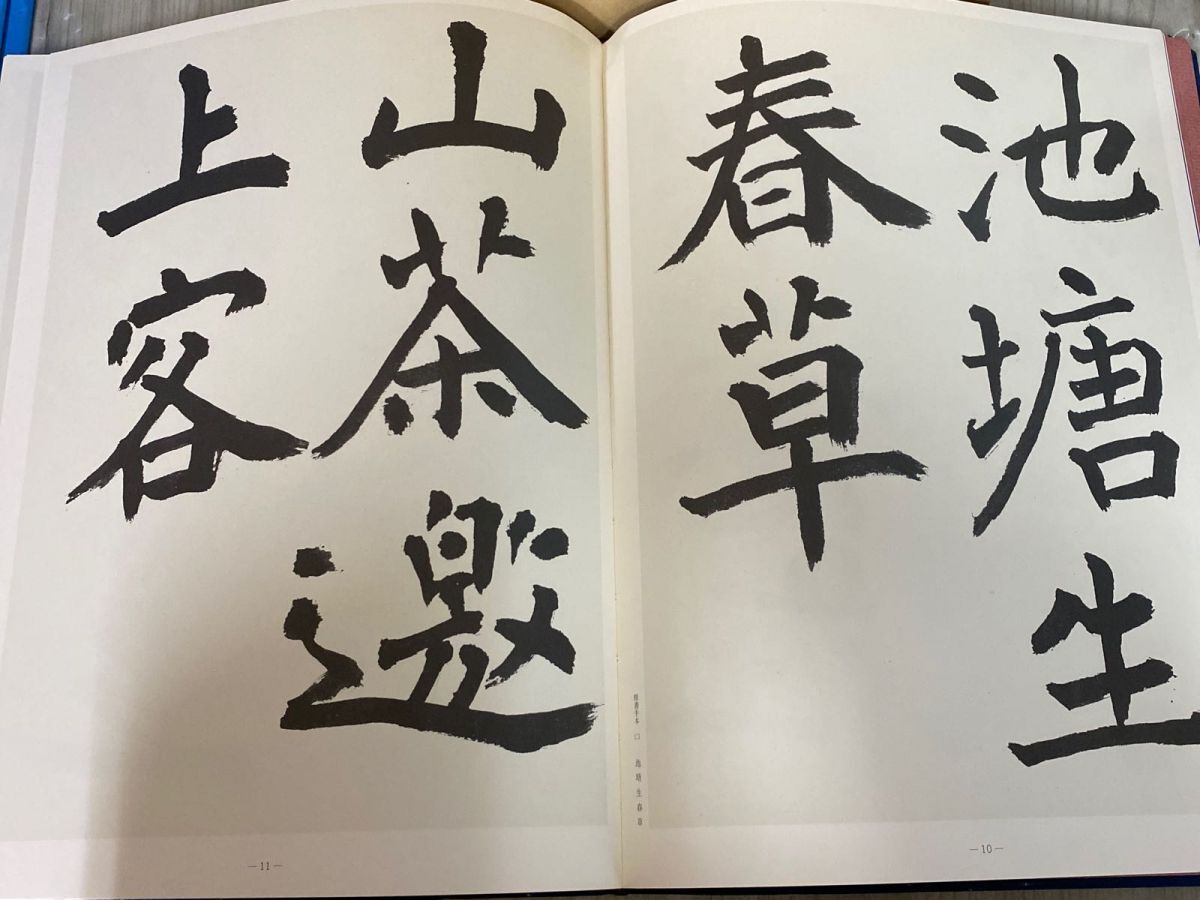 池塘生
春草
楷書手本 口 池塘生春草
—10—
山茶邀
上客
—11—